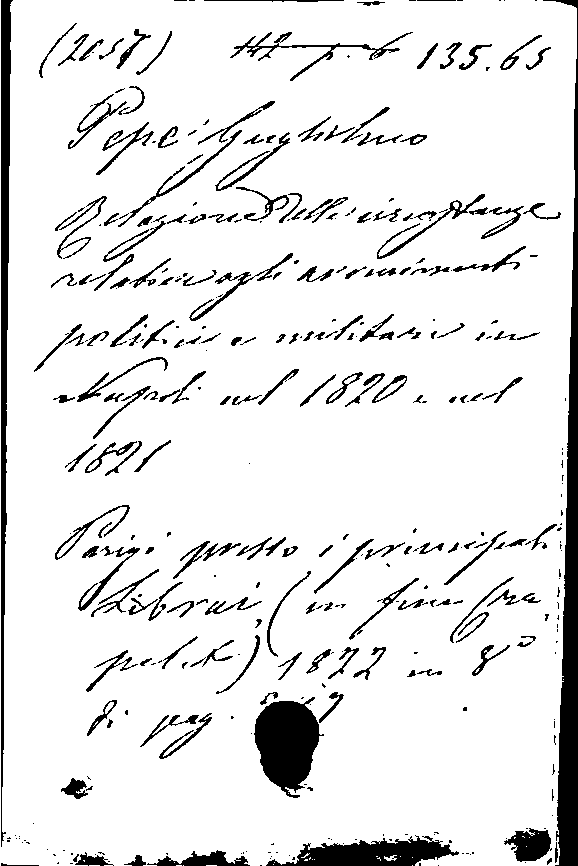 (2057) 142 p. 6 135.65
Pepe Guglielmo
Relazione delle circostanze
relative agli avvenimenti
politici e militari in
Napoli nel 1820 e nel
1821
Parigi presso i principali
Librai, (in fine Cra
pelet) 1822 in 8°
di pag.